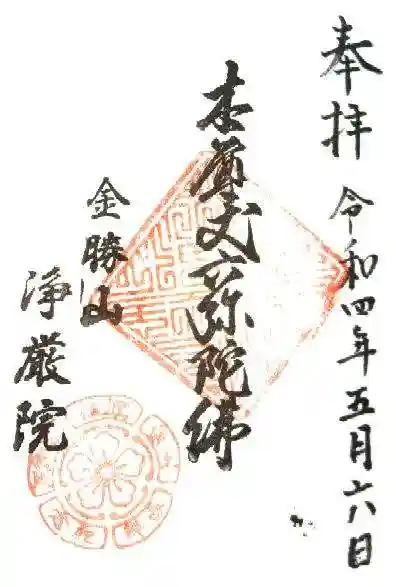 奉拝
令和四年五月六日
本尊丈六弥陀佛
金勝山
浄厳院